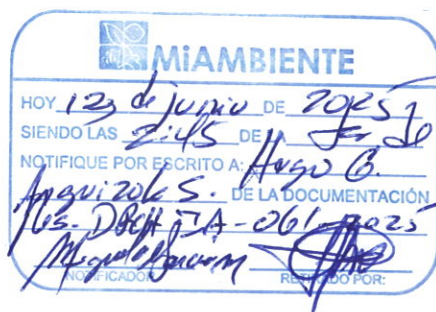 MiAMBIENTE
HOY 12 de junio DE 2025
SIENDO LAS 2:45 DE LA
NOTIFIQUE POR ESCRITO A: Hugo G.
S. DE LA DOCUMENTACIÓN
-061-2025
NOTIFICADOR RETIRADO POR: